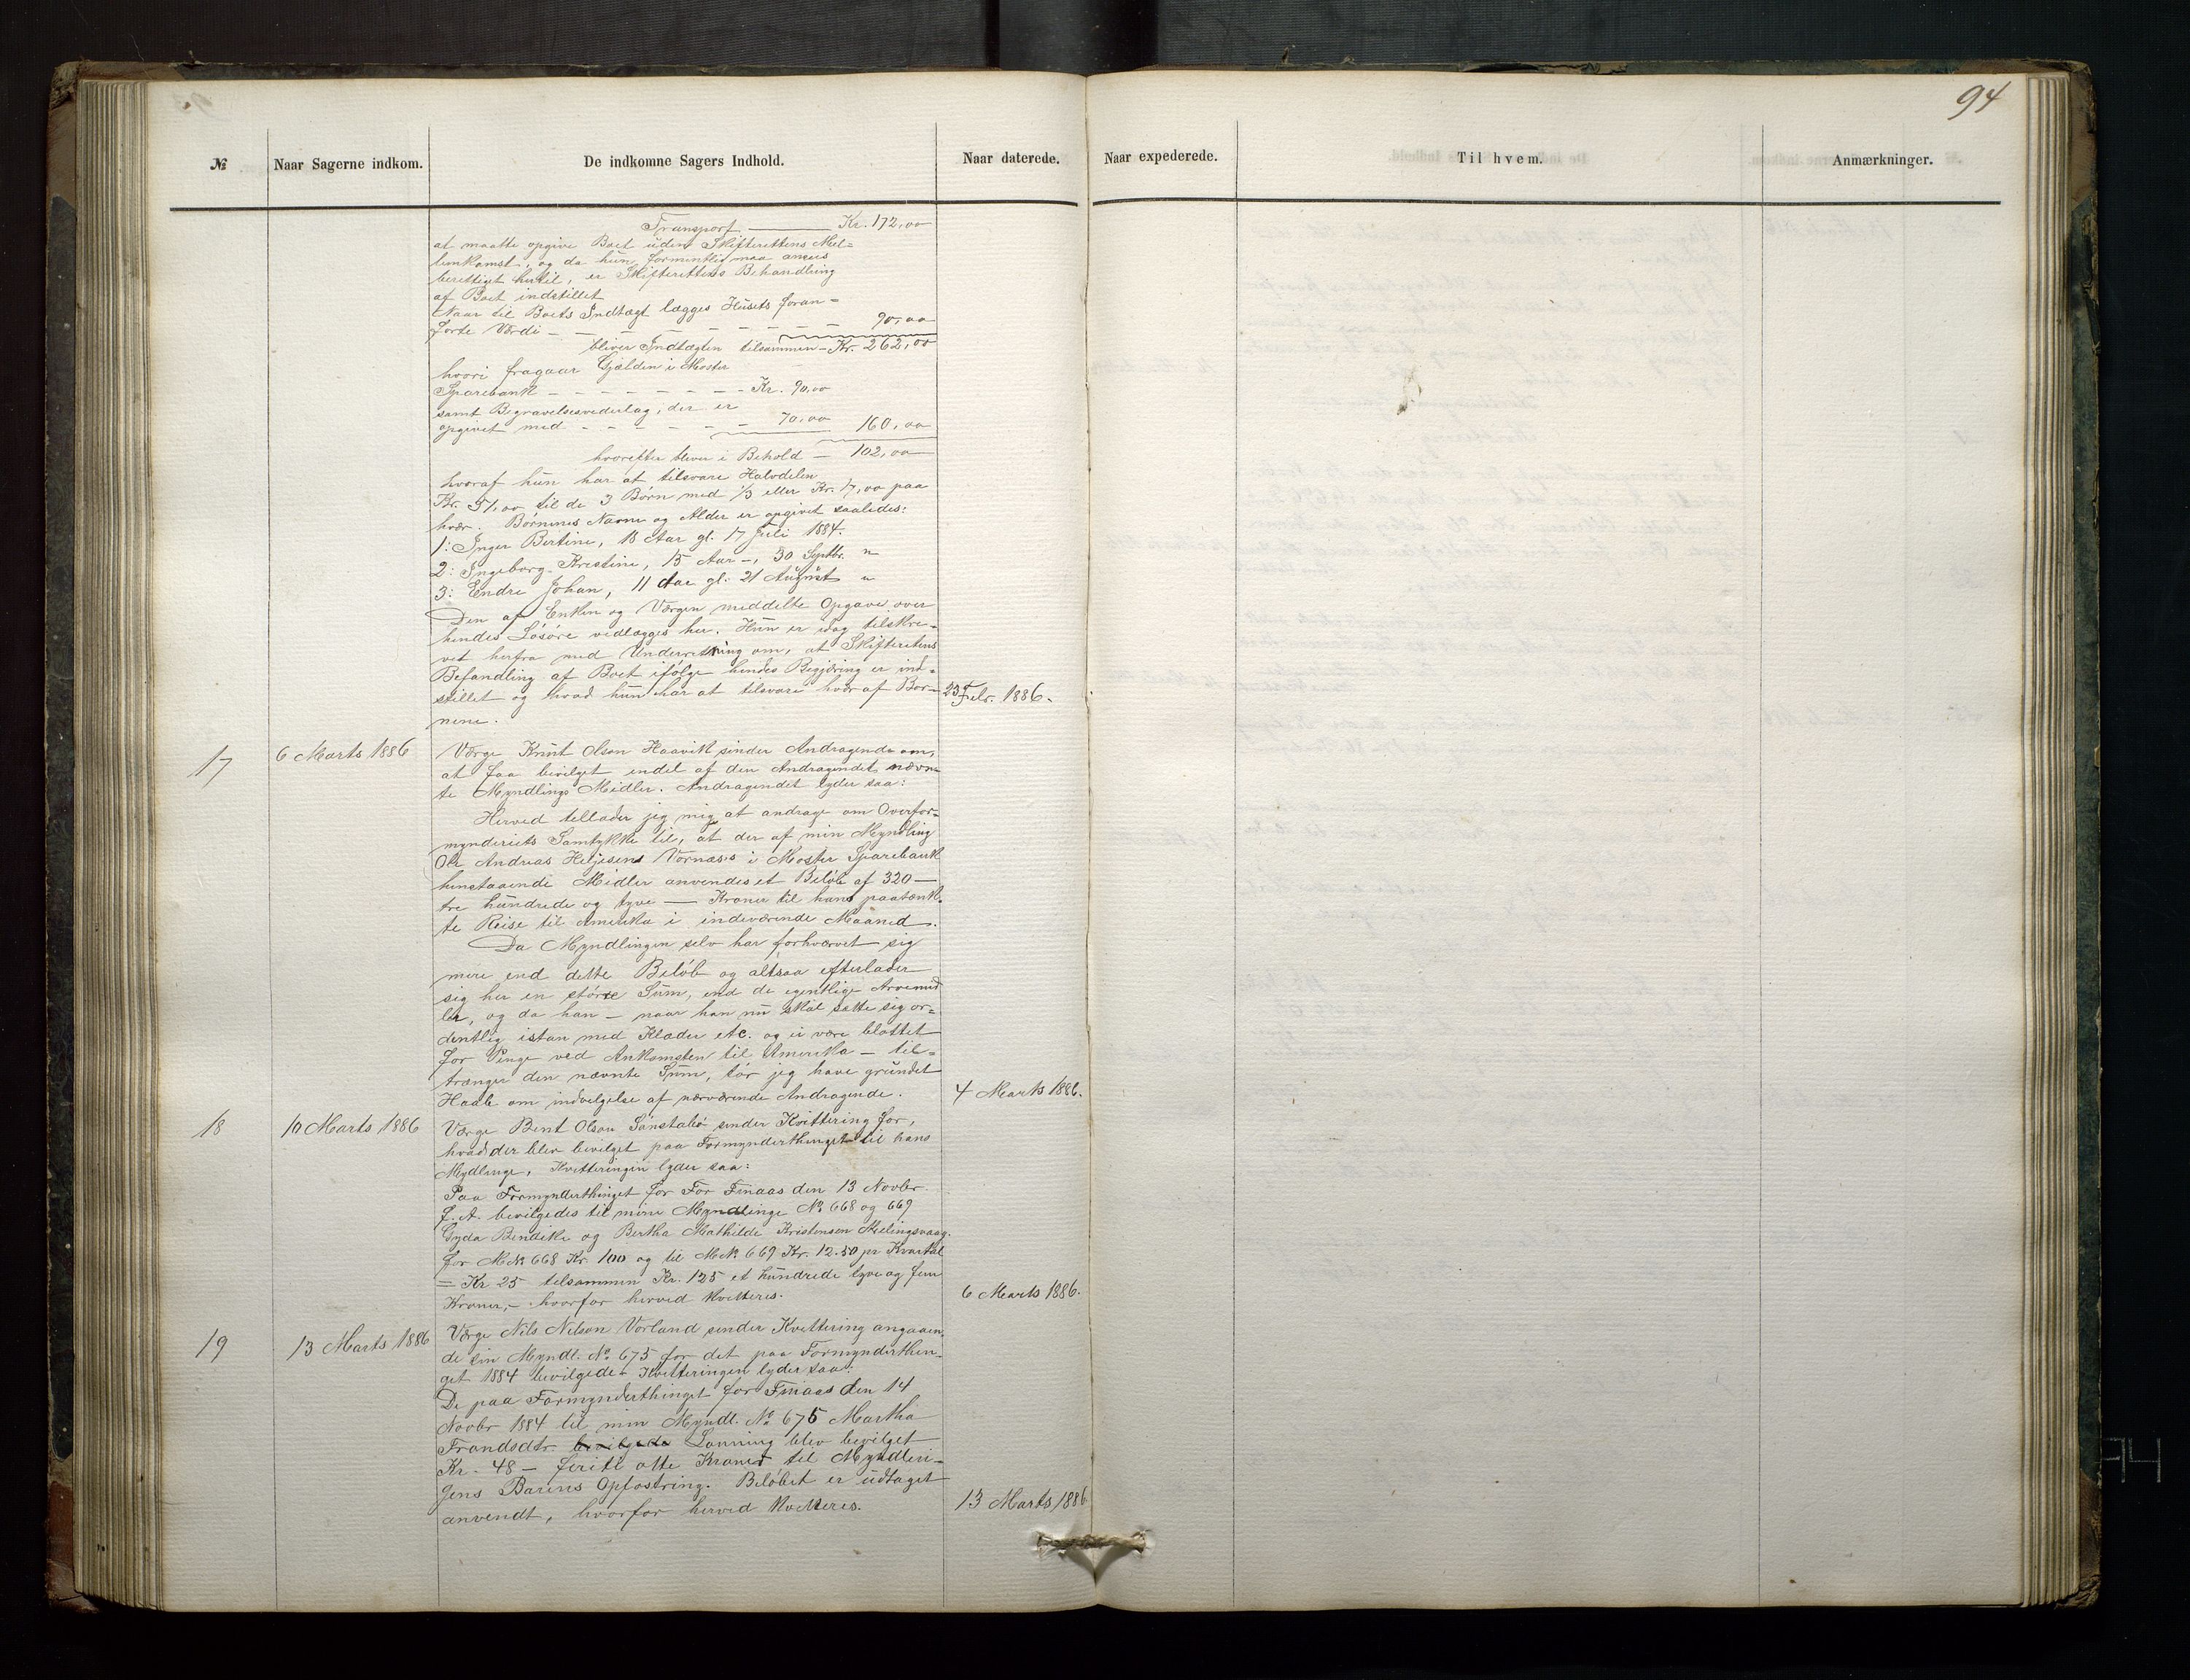 94
№ Naar Sagerne indkom. De indkomne Sagers Indhold. Naar daterede. Naar expederede. Til hvem. Anmærkninger.
Transport Kr. 172,00
at maatte opgive Boet uden Skifterettens Mel=
lemkomst, og da hun formentlig maa ansees
berettiget hertil, er Skifterettens Behandling
af Boet indstillet
Naar til Boets Indtægt lægges Husets foran=
førte Værdi - - - - - - 90,00
bliver Indtægten tilsammen - Kr. 262,00
hvori fragaar Gjælden i Moster
Sparebank - - - - - - - Kr. 90,00
samt Begravelsesvederlag, der er
opgivet med - - - - - - 70,00 160,00
hvorefter bliver i Behold - 102,00
hvoraf hun har at tilsvare Halvdelen
Kr. 51,00 til de 3 Børn med 1/3 eller Kr. 17,00 paa
hver. Børnenes Navne og Alder er opgivet saaledes:
1: Inger Bertine, 18 Aar gl. 17 Juli 1884.
2: Ingeborg Kristine, 15 Aar -, 30 Septbr. "
3: Endre Johan, 11 Aar gl. 21 August "
Den af Enken og Værgen meddelte Opgave over
hendes Løsøre vedlægges her. Hun er idag tilskre=
vet herfra med Underretning om, at Skifterettens
Behandling af Boet ifølge hendes Begjæring er ind=
stillet og hvad hun har at tilsvare hver af Bør- 23 Febr. 1886.
nene.
17 6 Marts 1886 Værge Knut Olson Haavik sender Andragende om,
at faa bevilget endel af den Andragendet nævn
te Myndlings Midler. Andragendet lyder saa:
Herved tillader jeg mig at andrage om Overfor=
mynderiets Samtykke til, at der af min Myndling
Ole Andreas Heljesens Vornæs's i Moster Sparebank
henstaaende Midler anvendes et Beløb af 320 —
tre hundrede og tyve — Kroner til hans paatænk
te Reise til Amerika i indeværende Maaned.
Da Myndlingen selv har forhvervet sig
mere end dette Beløb og altsaa efterlader
sig her en større Sum, end de egentlige Arvemid
ler, og da han - naar han nu skal sætte sig or=
dentlig istan med Klæder etc. og ei være blottet
for Penge ved Ankomsten til Amerika - til=
trænger den nævnte Sum, tør jeg have grundet
Haab om indvelgelse af nærværende Andragende. 4 Marts 1886.
18 10 Marts 1886 Værge Bent Olson Sønstabø sender Kvittering for,
hvad der blev bevilget paa Formynderthinget til hans
Myndlinge, Kvitteringen lyder saa:
Paa Formynderthinget for For Finaas den 13 Novbr.
f. A. bevilgedes til mine Myndlinge № 668 og 669
Gyda Bendike og Bertha Mathilde Kristensen Mælingsvaag.
for M№ 668 Kr. 100 og til M№ 669 Kr. 12.50 pr Kvartal
= Kr 25 tilsammen Kr. 125 et hundrede tyve og fem
Kroner, - hvorfor herved kvitteres. 6 Marts 1886.
19 13 Marts 1886 Værge Nils Nilson Vorland sender Kvittering angaaen
de sin Myndl. № 675 for det paa Formynderthin-
get 1884 bevilgede. Kvitteringen lyder saa:
De paa Formynderthinget for Finaas den 14
Novbr 1884 til min Myndl. № 675 Martha
Frandsdtr. bevilgede Lønning blev bevilget
Kr. 48 - firiti otte Kroner til Myndlin-
gens Barens Opfostring. Beløbet er udtaget
anvendt, hvorfor herved kvitteres. 13 Marts 1886.